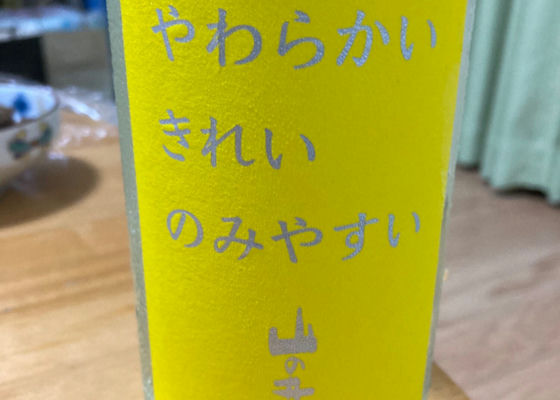 やわらかい
きれい
のみやすい
山の井